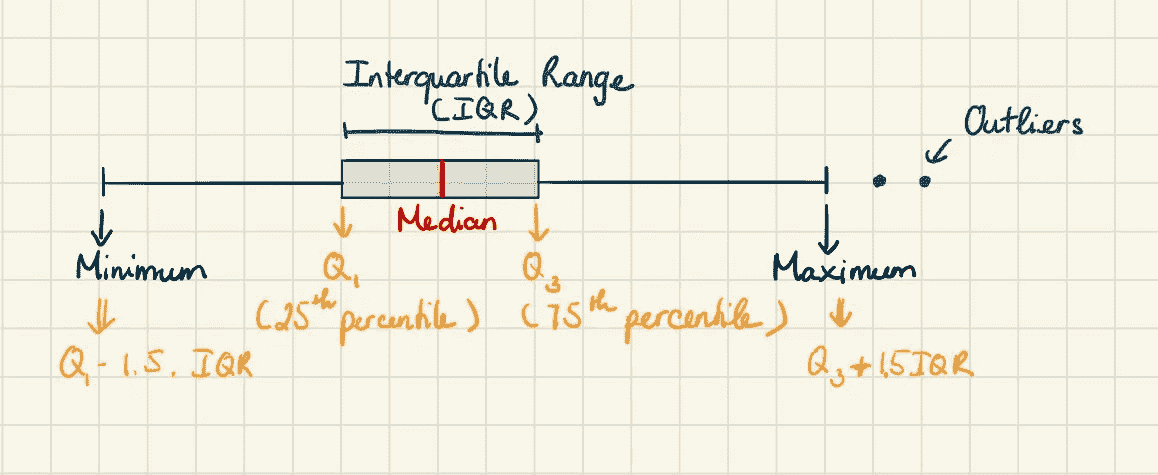 Interquartile Range
(IQR)
Outliers
Median
Minimum
Q₁
Q₃
Maximum
(25th percentile)
(75th percentile)
Q₁ - 1.5. IQR
Q₃ + 1.5 IQR